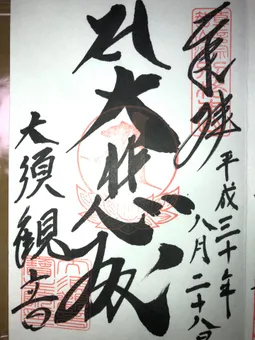 奉拝
平成三十年
八月二十八日
大悲殿
大須観音